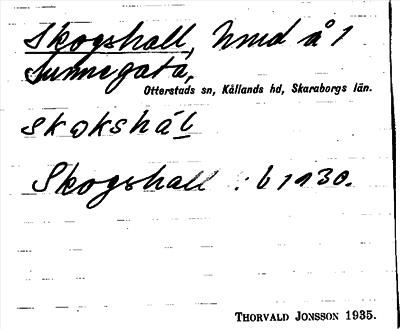 Skogshall, hmd å 1
Sunnegåta,
Otterstads sn, Kållands hd, Skaraborgs län.
skokshál
Skogshall : b 1930.
THORVALD JONSSON 1935.